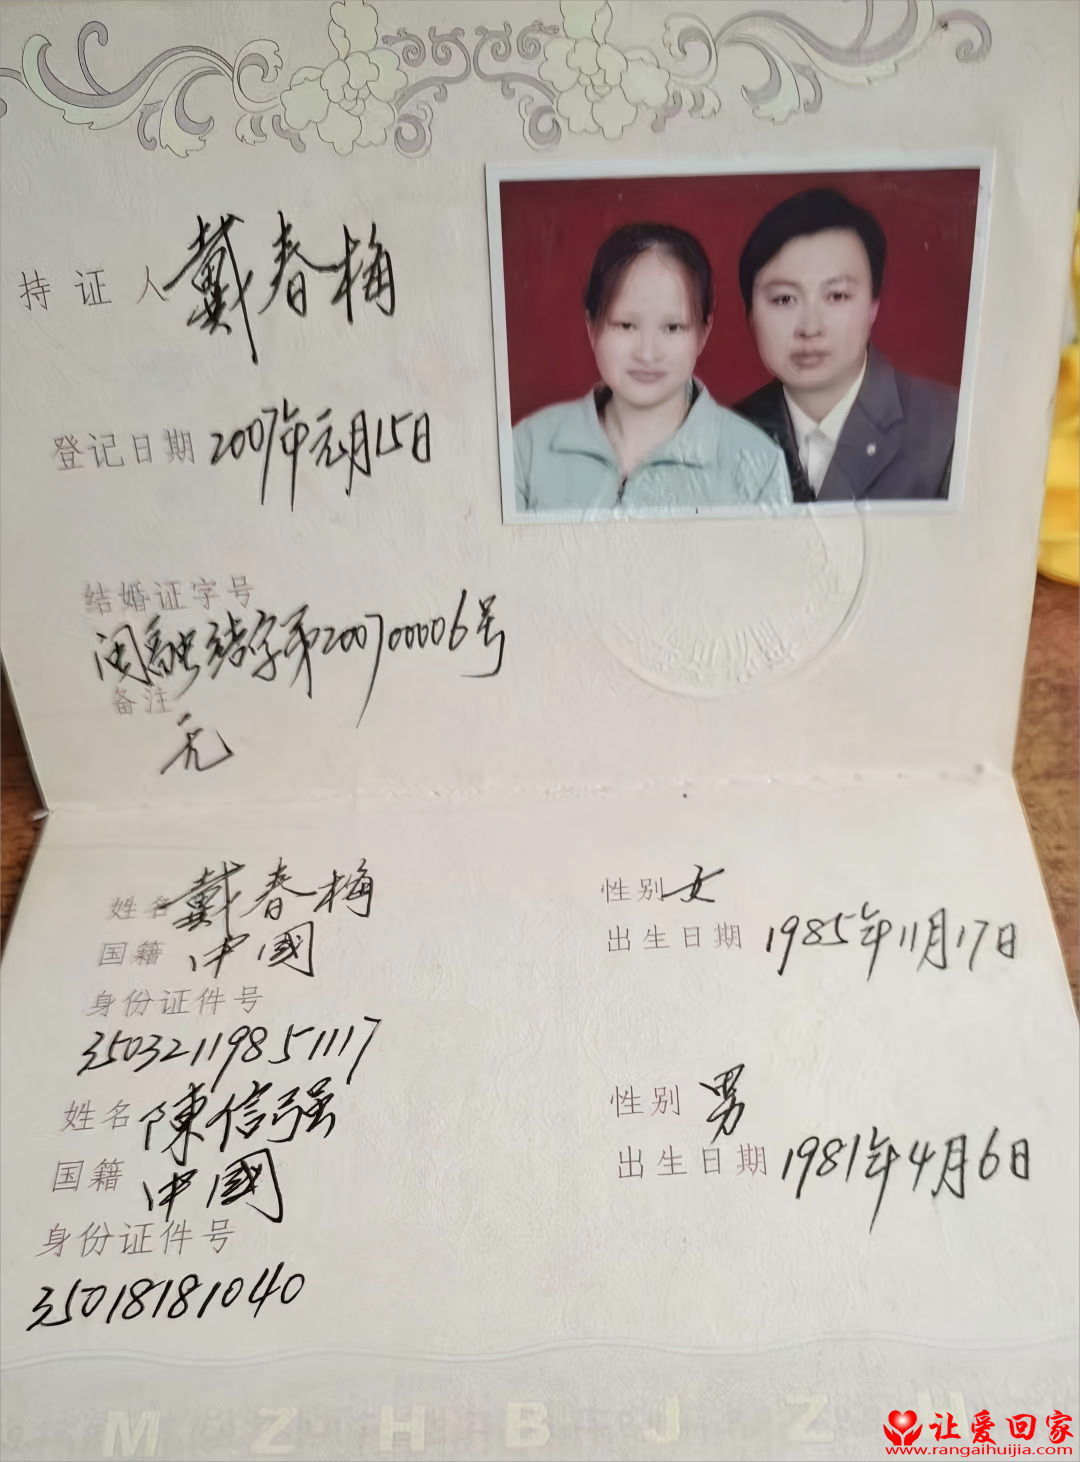 持证人 戴春梅
登记日期 2007年元月15日
结婚证字号
闽融结字第200700006号
备注
无
姓名 戴春梅
性别 女
国籍 中國
出生日期 1985年11月17日
身份证件号
35032119851117
姓名 陳信强
性别 男
国籍 中國
出生日期 1981年4月6日
身份证件号
35018181040
M Z H B J Z
让爱回家
www.rangaihuijia.com